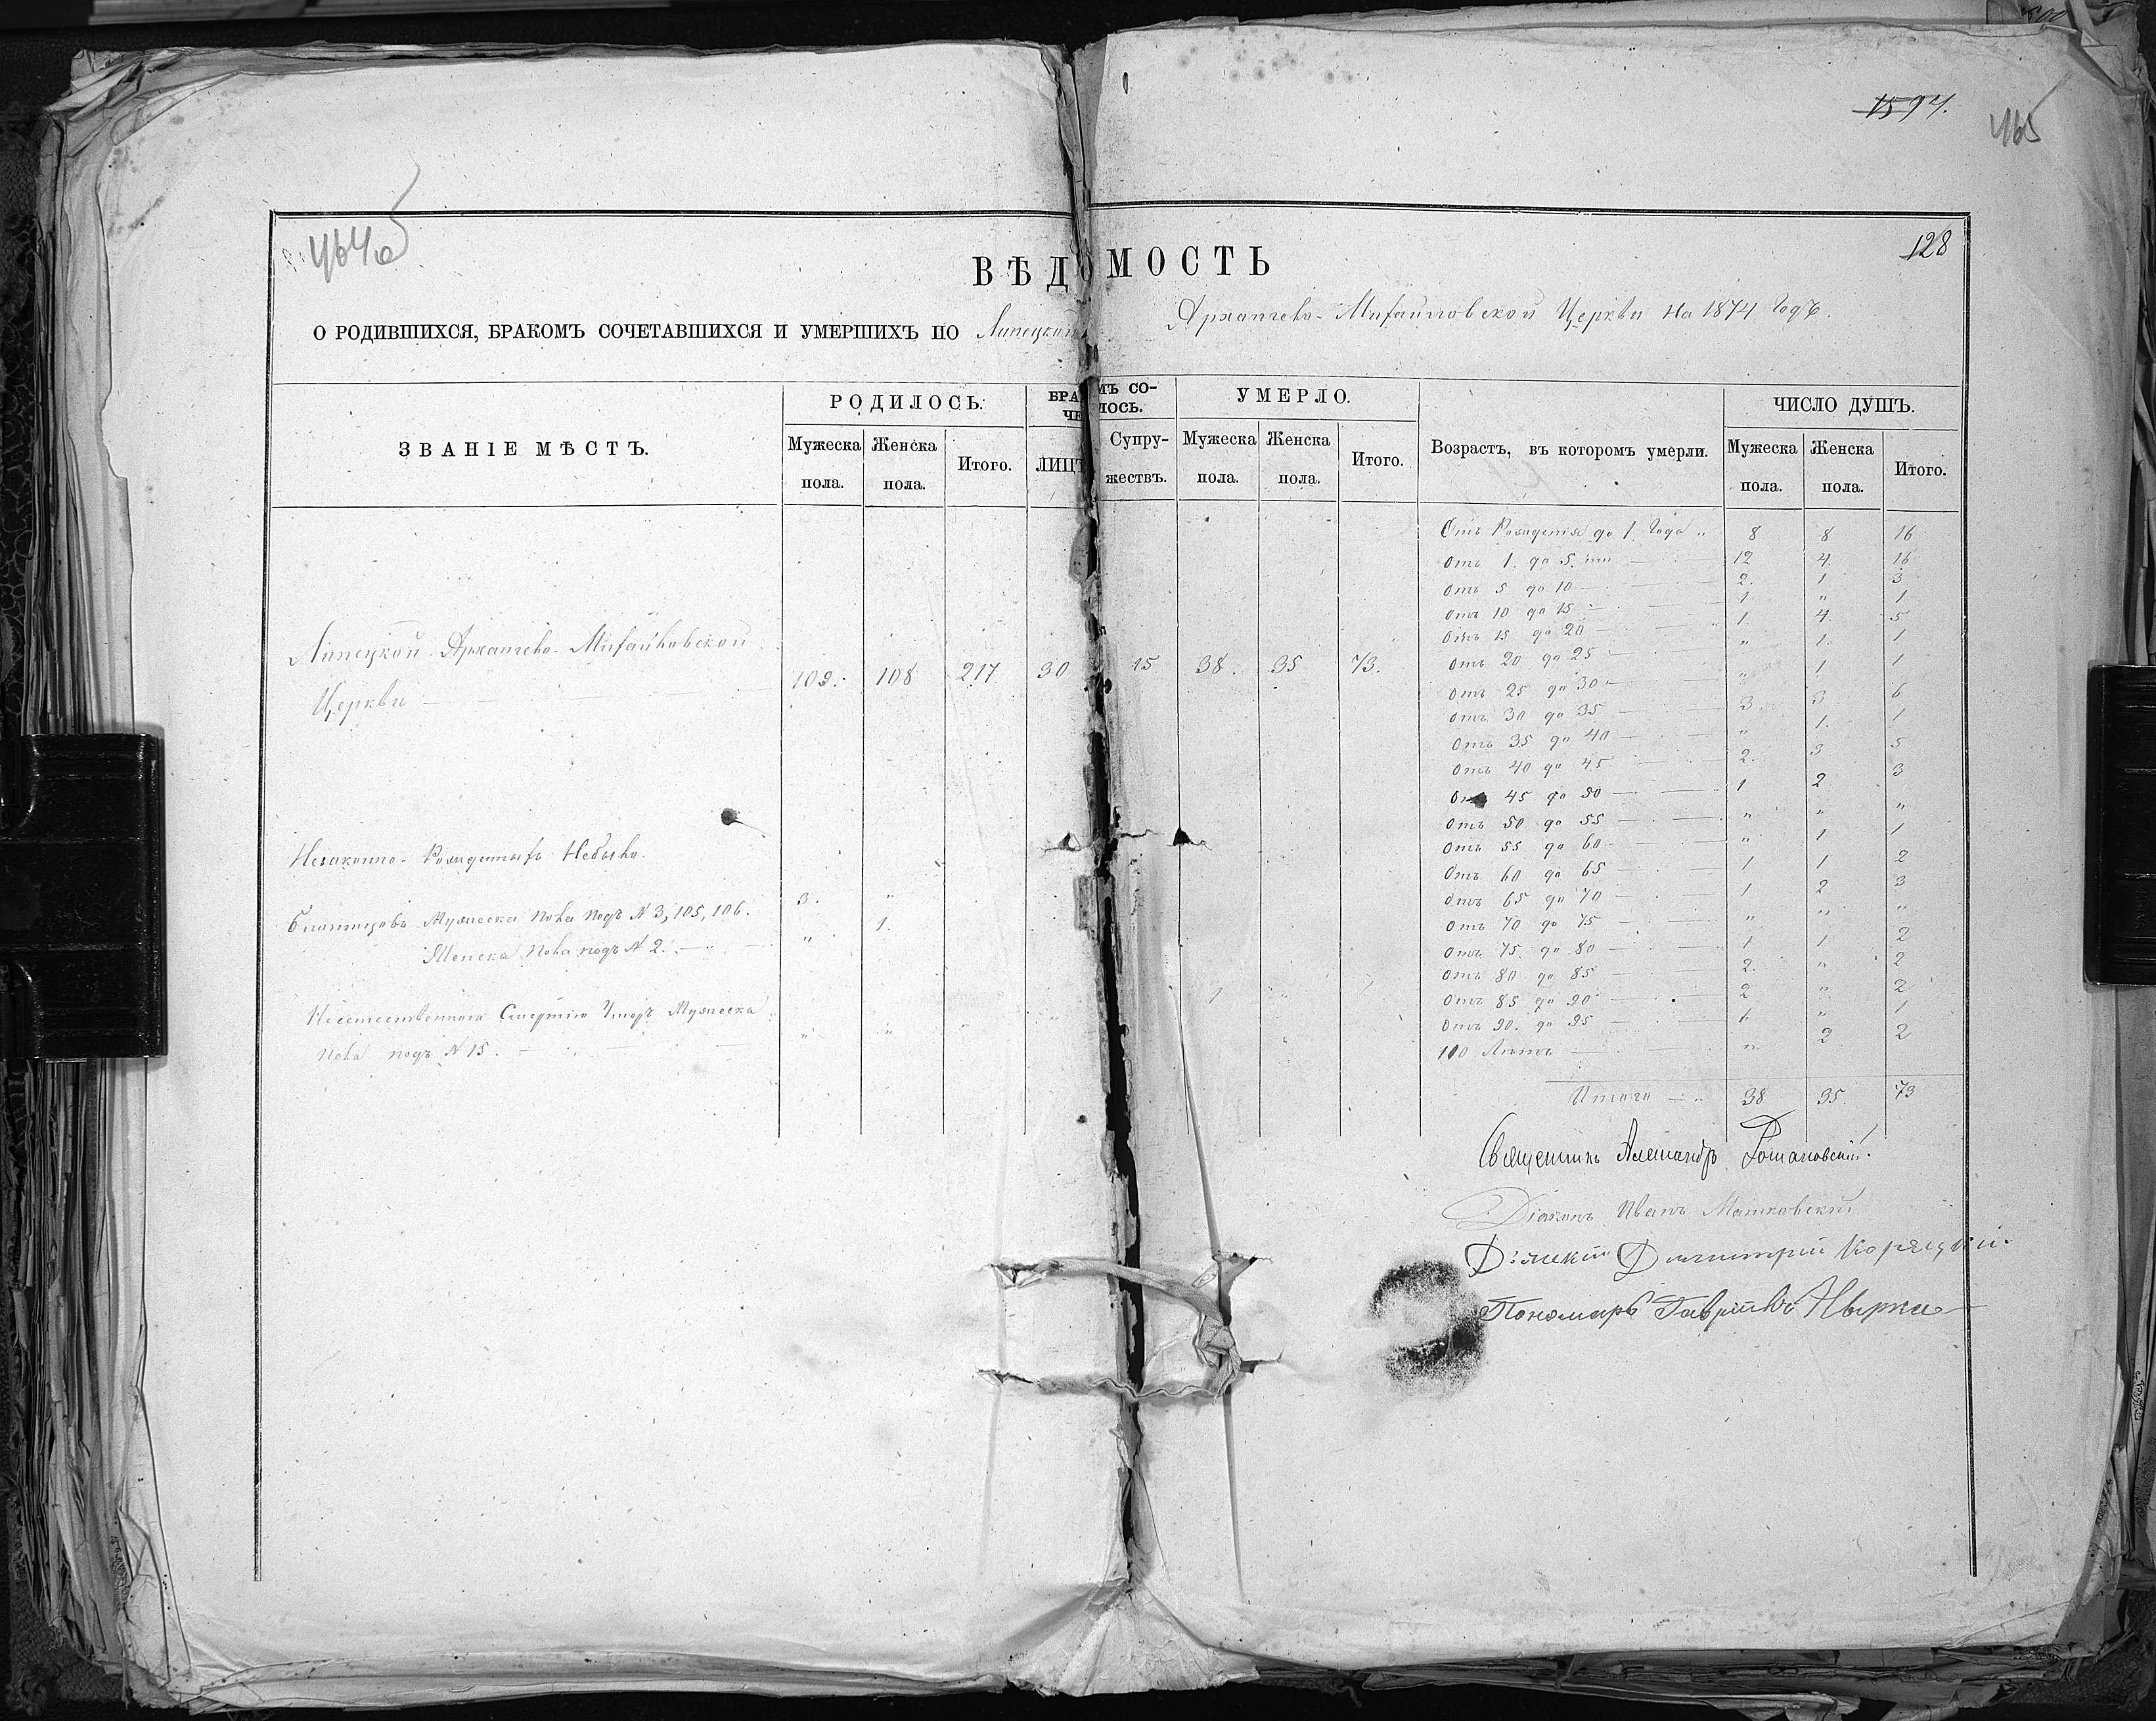 1597.
465
464об
128
ВѢДОМОСТЬ
О РОДИВШИХСЯ, БРАКОМЪ СОЧЕТАВШИХСЯ И УМЕРШИХЪ ПО Липецкой Архангело-Михайловской Церкви на 1874 годъ.
ЗВАНІЕ МѢСТЪ. РОДИЛОСЬ. БРА МЪ СО- ЧЕ ЛОСЬ. УМЕРЛО. Возрастъ, въ которомъ умерли. ЧИСЛО ДУШЪ.
Мужеска пола. Женска пола. Итого. ЛИЦЪ Супружествъ. Мужеска пола. Женска пола. Итого. Мужеска пола. Женска пола. Итого.
Липецкой Архангело-Михайловской
Церкви
109. 108 217 30 15 38. 35 73.
Незаконно-Рожденныхъ Небыло.
Близнецовъ Мужеска пола подъ N 3, 105, 106. 3. "
Женска пола подъ N 2. " 1.
Неестественною Смертію Умеръ Мужеска
пола подъ N 15. 1
Отъ Рожденія до 1 Года " 8 8 16
Отъ 1. до 5. 12 4. 16
Отъ 5 до 10 2. 1 3
Отъ 10 до 15 1. " 1
Отъ 15 до 20 1. 4. 5
Отъ 20 до 25 " 1. 1
Отъ 25 до 30 " 1 1
Отъ 30 до 35 3 3 6
Отъ 35 до 40 " 1. 1
Отъ 40 до 45 2. 3 5
Отъ 45 до 50 1 2 3
Отъ 50 до 55 " " "
Отъ 55 до 60 " 1 1
Отъ 60 до 65 1 1 2
Отъ 65 до 70 1 2 3
Отъ 70 до 75 " " "
Отъ 75 до 80 1 1 2
Отъ 80 до 85 2. " 2
Отъ 85 до 90 2 " 2
Отъ 90. до 95 1 " 1
100 Лѣтъ " 2 2
Итого 38 35 73
Священникъ Александръ Романовскій.
Діаконъ Иванъ Матковскій
Дьячекъ Димитрій Корецкій.
Пономарь Гавріилъ